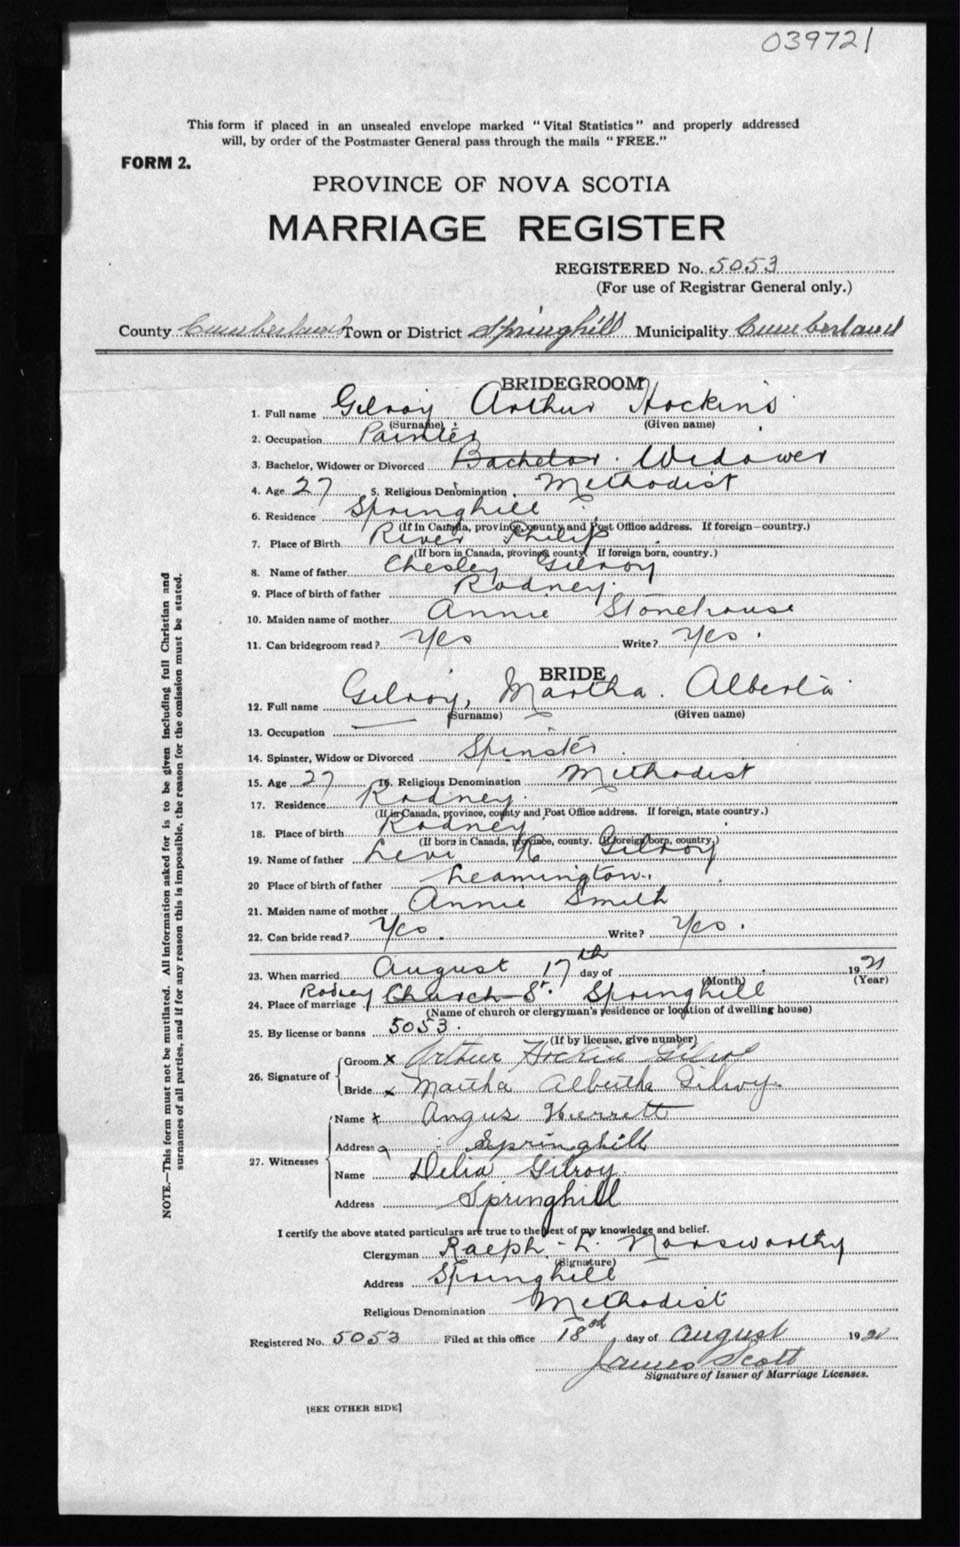 039721
This form if placed in an unsealed envelope marked "Vital Statistics" and properly addressed
will, by order of the Postmaster General pass through the mails "FREE."
FORM 2.
PROVINCE OF NOVA SCOTIA
MARRIAGE REGISTER
REGISTERED No. 5053
(For use of Registrar General only.)
County Cumberland Town or District Springhill Municipality Cumberland
BRIDEGROOM
1. Full name Gilroy Arthur Hockins
(Surname) (Given name)
2. Occupation Painter
3. Bachelor, Widower or Divorced Bachelor. Widower
4. Age 27 5. Religious Denomination Methodist
6. Residence Springhill
(If in Canada, province, county and Post Office address. If foreign—country.)
7. Place of Birth River Philip
(If born in Canada, province, county. If foreign born, country.)
8. Name of father Chesley Gilroy
9. Place of birth of father Rodney
10. Maiden name of mother Annie Stonehouse
11. Can bridegroom read? Yes Write? Yes.
BRIDE
12. Full name Gilroy, Martha. Alberta
(Surname) (Given name)
13. Occupation —
14. Spinster, Widow or Divorced Spinster
15. Age 27 16. Religious Denomination Methodist
17. Residence Rodney.
(If in Canada, province, county and Post Office address. If foreign, state country.)
18. Place of birth Rodney
(If born in Canada, province, county. If foreign born, country.)
19. Name of father Levi Gilroy
20 Place of birth of father Leamington.
21. Maiden name of mother Annie Smith
22. Can bride read? Yes. Write? Yes.
23. When married August 17th day of 1921
(Month) (Year)
24. Place of marriage Rodney Church St. Springhill
(Name of church or clergyman's residence or location of dwelling house)
25. By license or banns 5053.
(If by license, give number)
26. Signature of Groom x Arthur Hockin Gilroy
Bride x Martha Albertha Gilroy
27. Witnesses Name x Angus Herrett
Address Springhill
Name Delia Gilroy
Address Springhill
I certify the above stated particulars are true to the best of my knowledge and belief.
Clergyman Ralph L. Norsworthy
(Signature)
Address Springhill
Religious Denomination Methodist
Registered No. 5053 Filed at this office 18 day of August 192
James Scott
Signature of Issuer of Marriage Licenses.
[SEE OTHER SIDE]
NOTE.—This form must not be mutilated. All information asked for is to be given including full Christian and
surnames of all parties, and if for any reason this is impossible, the reason for the omission must be stated.